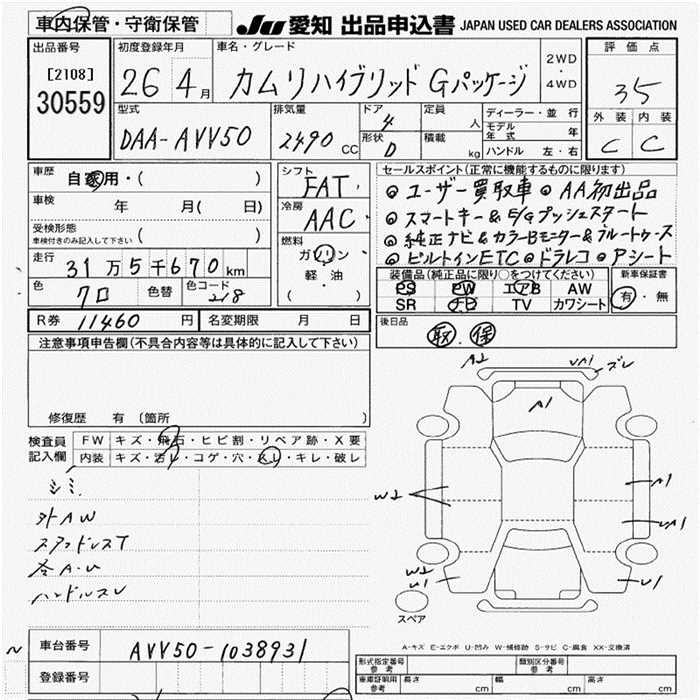 車内保管・守衛保管
JU 愛知 出品申込書 JAPAN USED CAR DEALERS ASSOCIATION
出品番号
[2108]
30559
初度登録年月
26 4月
車名・グレード
カムリハイブリッド Gパッケージ
2WD
・
4WD
評価点
35
外装 内装
C C
型式
DAA-AVV50
排気量
2490 CC
ドア
4
形状
D
定員
人
積載
kg
ディーラー・並行
モデル年式 年
ハンドル 左・右
車歴
自家用・( )
車検
年 月( 日)
受検形態
車検付きのみ記入して下さい ( )
走行
31万5千670km
色
クロ
色替
色コード
218
シフト
FAT
冷房
AAC
燃料
ガソリン
軽・油
( ・ )
セールスポイント(正常に機能するものに限ります)
◎ ユーザー買取車 ◎ AA初出品
◎ スマートキー & E/Gプッシュスタート
◎ 純正ナビ & カラーBモニター & ブルートゥース
◎ ビルトインETC ◎ ドラレコ ◎ Pシート
装備品(純正品に限り○をつけてください)
PS PW エアB AW
SR ナビ TV カワシート
新車保証書
有・無
R券 11460 円
名変期限 月 日
後日品
取・保
注意事項申告欄(不具合内容等は具体的に記入して下さい)
修復歴 有 〔箇所 〕
検査員記入欄
FW キズ・飛石・ヒビ割・リペア跡・X要
内装 キズ・汚レ・コゲ・穴・スレ・キレ・破レ
シミ
外AW
スタッドレスT
ハンドルスレ
A2
UA1
ズレ
A1
W2
A1
UA1
W2
U1
U1
スペア
A-キズ E-エクボ U-凹み W-補修跡 S-サビ C-腐食 XX-交換済
車台番号
AVV50-1038931
登録番号
形式指定番号
参考
類別区分番号
参考
車庫証明用
参考
長さ cm
幅 cm
高さ cm